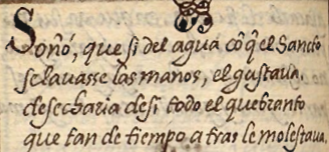 Soñó, que si del agua cõ q̃ el Sancto
se lauasse las manos, el gustaua,
desecharia de si todo el quebranto
que tan de tiempo a tras le molestaua,